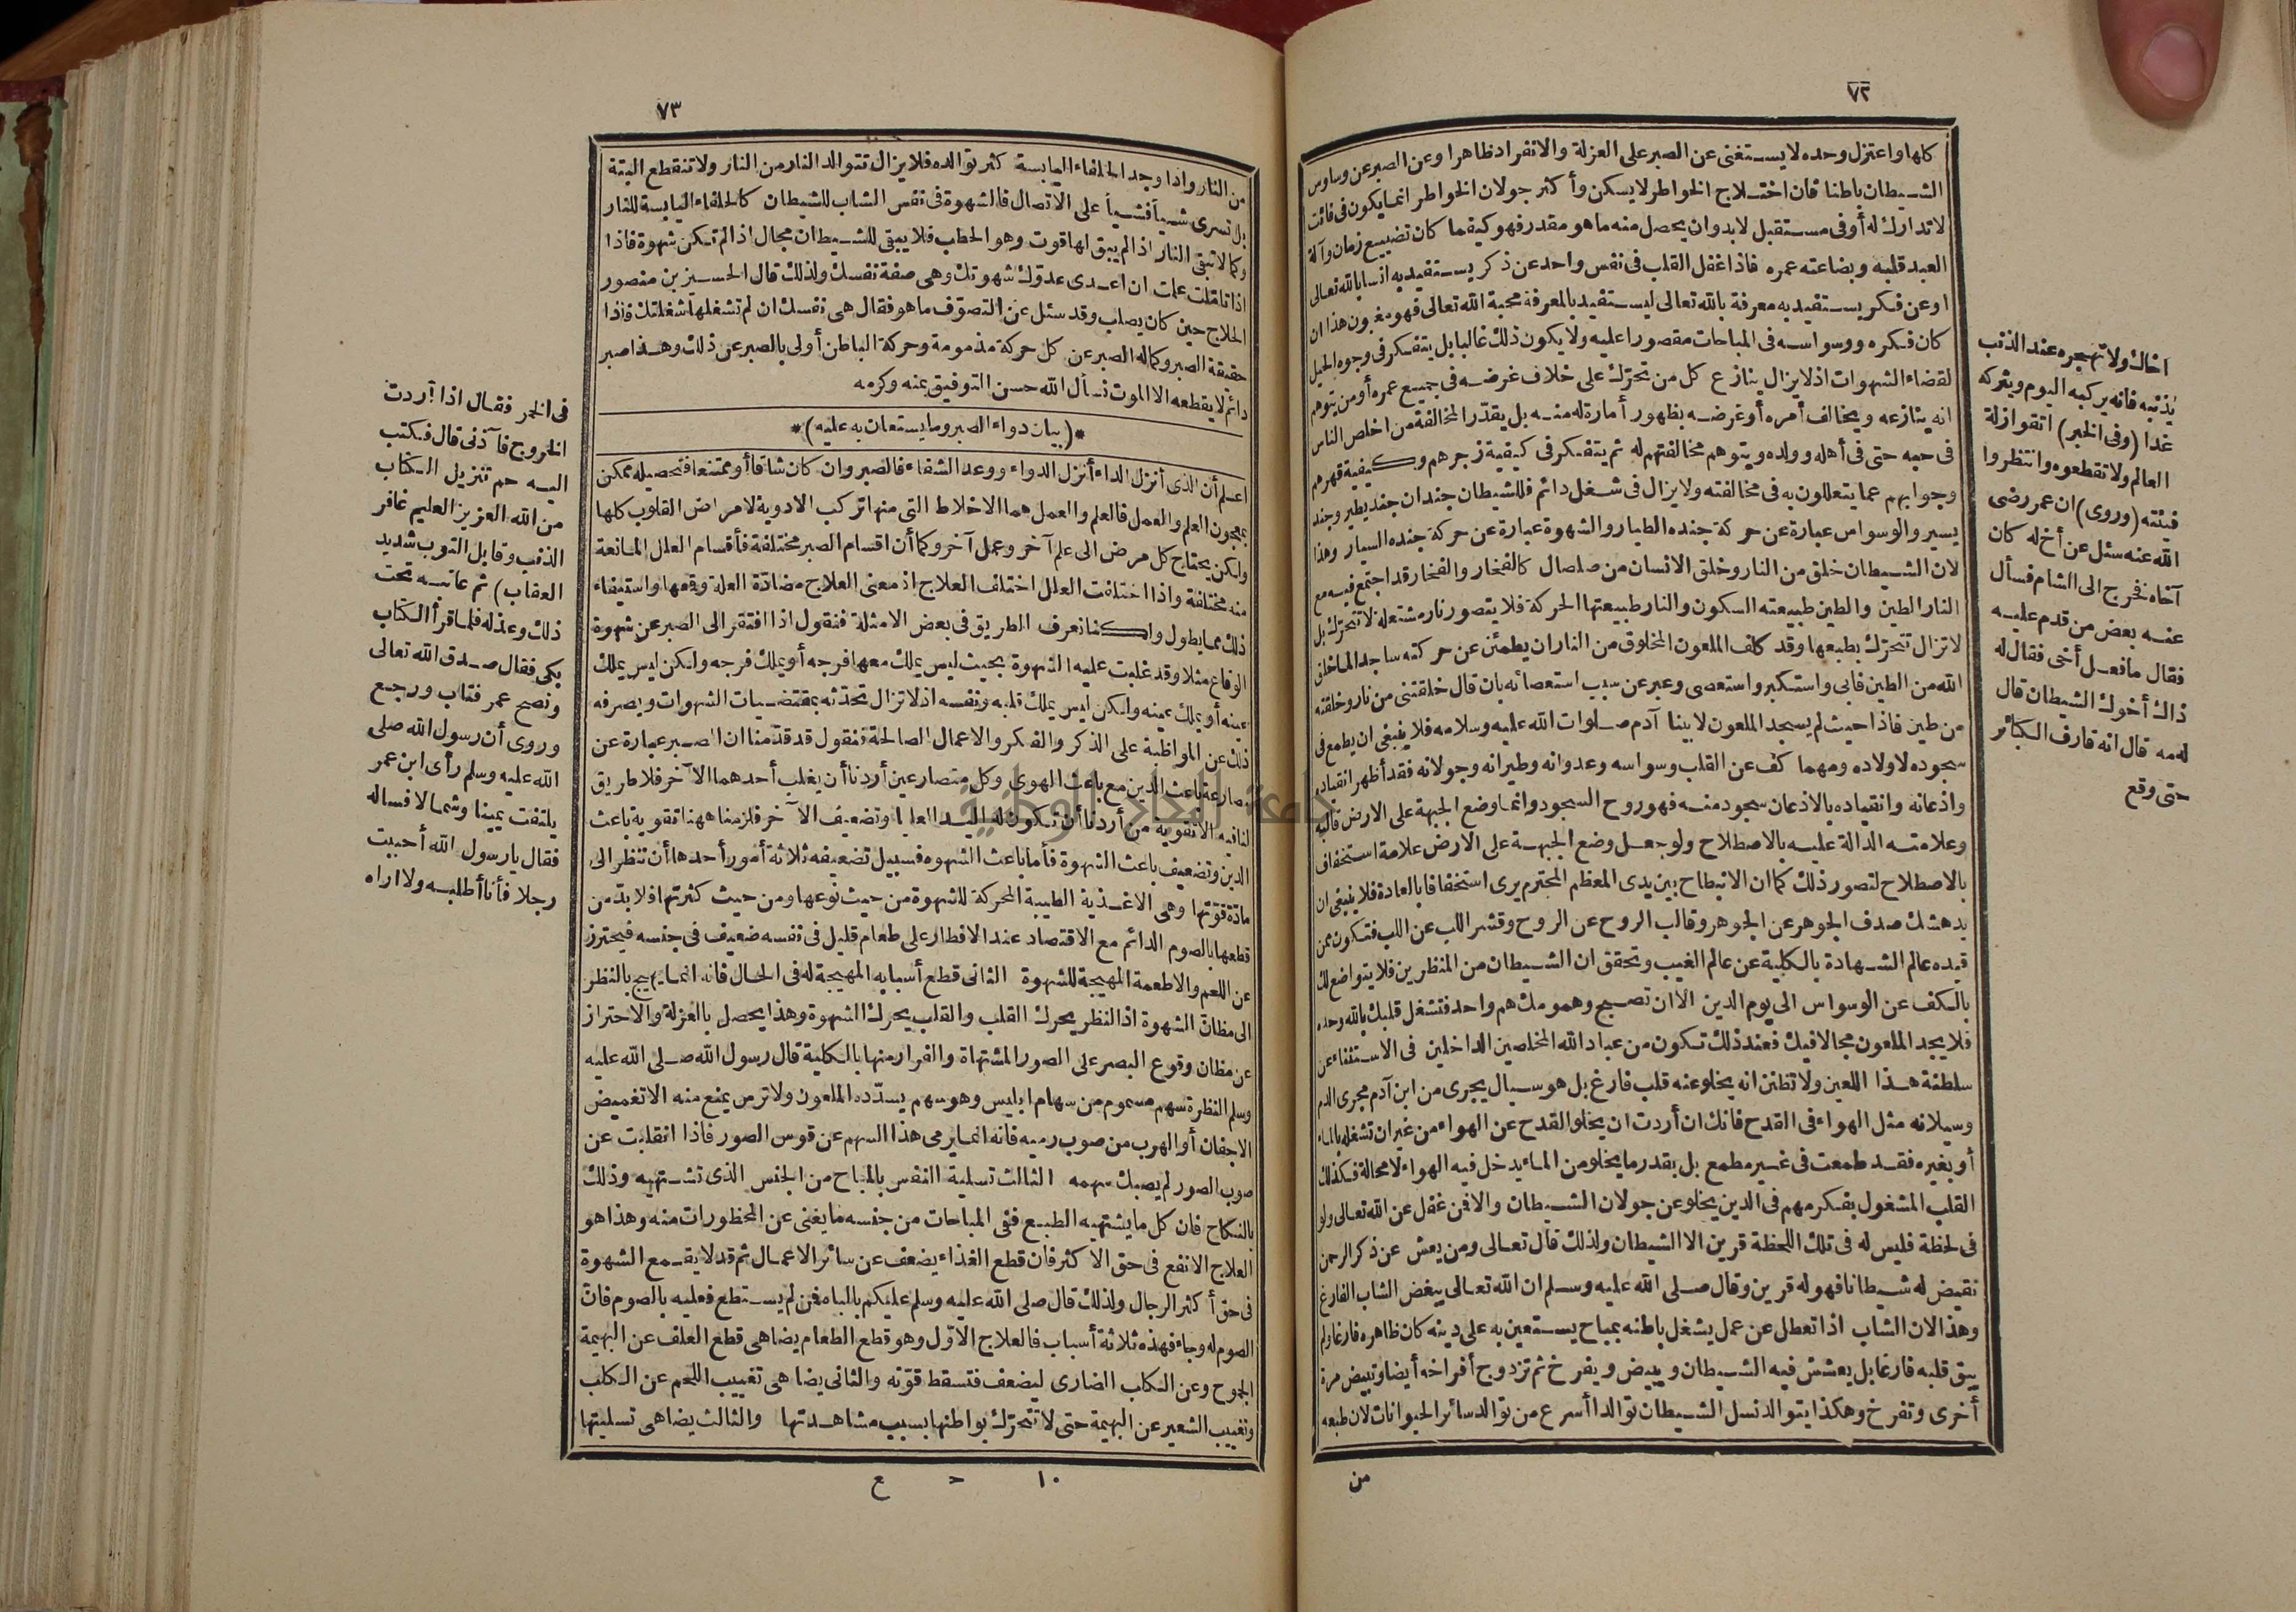 ٧٢
كلها واعتزل وحده لا يستغنى عن الصبر على العزلة والانفراد ظاهرا وعن الصبر عن وساوس
الشيطان باطنا فان اختلاج الخواطر لا يسكن وأكثر جولان الخواطر انما يكون فى فائت
لا تدارك له أو فى مستقبل لا بد وان يحصل منه ما هو مقدر فهو كيفما كان تضييع زمان وآلة
العبد قلبه وبضاعته عمره فاذا غفل القلب فى نفس واحد عن ذكر يستفيد به انسا بالله تعالى
او عن فكر يستفيد به معرفة بالله تعالى ليستفيد بالمعرفة محبة الله تعالى فهو مغبون هذا ان
كان فكره ووسواسه فى المباحات مقصورا عليه ولا يكون ذلك غالبا بل يتفكر فى وجوه الحيل
لقضاء الشهوات اذ لا يزال ينازع كل من تحرّك على خلاف غرضه فى جميع عمره أو من يتوهم
انه ينازعه ويخالف أمره أو غرضه بظهور أمارة له منه بل يقدّر المخالفة من اخلص الناس
فى حبه حتى فى أهله وولده ويتوهم مخالفتهم له ثم يتفكر فى كيفية زجرهم وكيفية قهرهم
وجوابهم عما يتعللون به فى مخالفته ولا يزال فى شغل دائم فللشيطان جندان جند يطير وجند
يسير والوسواس عبارة عن حركة جنده الطيار والشهوة عبارة عن حركة جنده السيار وهذا
لان الشيطان خلق من النار وخلق الانسان من صلصال كالفخار والفخار قد اجتمع فيه مع
النار الطين والطين طبيعته السكون والنار طبيعتها الحركة فلا يتصور نار مشتعلة لا تتحرّك بل
لا تزال تتحرّك بطبعها وقد كلف الملعون المخلوق من النار ان يطمئن عن حركته ساجدا لما خلق
الله من الطين فابى واستكبر واستعصى وعبر عن سبب استعصائه بان قال خلقتنى من نار وخلقته
من طين فاذا حيث لم يسجد الملعون لابينا آدم صلوات الله عليه وسلامه فلا ينبغى ان يطمع فى
سجوده لاولاده ومهما كف عن القلب وسواسه وعدوانه وطيرانه وجولانه فقد أظهر انقياده
واذعانه وانقياده بالاذعان سجود منه فهو روح السجود وانما وضع الجبهة على الارض قالبه
وعلامته الدالة عليه بالاصطلاح ولو جعل وضع الجبهة على الارض علامة استخفاف
بالاصطلاح لتصور ذلك كما ان الانبطاح بين يدى المعظم المحترم يرى استخفافا بالعادة فلا ينبغى ان
يدهشك صدف الجوهر عن الجوهر وقالب الروح عن الروح وقشر اللب عن اللب فتكون ممن
قيده عالم الشهادة بالكلية عن عالم الغيب وتحقق ان الشيطان من المنظرين فلا يتواضع لك
بالكف عن الوسواس الى يوم الدين الا ان تصبح وهمومك هم واحد فتشغل قلبك بالله وحده
فلا يجد الملعون مجالا فيك فعند ذلك تكون من عباد الله المخلصين الداخلين فى الاستثناء عن
سلطنة هذا اللعين ولا تظنن انه يخلو عنه قلب فارغ بل هو سيال يجرى من ابن آدم مجرى الدم
وسيلانه مثل الهواء فى القدح فانك ان أردت ان يخلو القدح عن الهواء من غير ان تشغله بالماء
أو بغيره فقد طمعت فى غير مطمع بل بقدر ما يخلو من الماء يدخل فيه الهواء لا محالة فكذلك
القلب المشغول بفكر مهم فى الدين يخلو عن جولان الشيطان والا فمن غفل عن الله تعالى ولو
فى لحظة فليس له فى تلك اللحظة قرين الا الشيطان ولذلك قال تعالى ومن يعش عن ذكر الرحمن
نقيض له شيطانا فهو له قرين وقال صلى الله عليه وسلم ان الله تعالى يبغض الشاب الفارغ
وهذا لان الشاب اذا تعطل عن عمل يشغل باطنه بمباح يستعين به على دينه كان ظاهره فارغا ولم
يبق قلبه فارغا بل يعشش فيه الشيطان ويبيض ويفرخ ثم تزدوج أفراخه أيضا وتبيض مرة
أخرى وتفرخ وهكذا يتوالد نسل الشيطان توالدا أسرع من توالد سائر الحيوانات لان طبعه
من
اخاك ولا تهجره عند الذنب
يذنبه فانه يركبه اليوم ويتركه
غدا (وفى الخبر) اتقوا زلة
العالم ولا تقطعوه وانتظروا
فيئته (وروى) ان عمر رضى
الله عنه سئل عن أخ له كان
آخاه فخرج الى الشام فسأل
عنه بعض من قدم عليه
فقال ما فعل أخى فقال له
ذاك أخوك الشيطان قال
له مه قال انه قارف الكبائر
حتى وقع
٧٣
من النار واذا وجد الحلفاء اليابسة كثر توالده فلا يزال تتوالد النار من النار ولا تنقطع البتة
بل تسرى شيأ فشيأ على الاتصال فالشهوة فى نفس الشاب للشيطان كالحلفاء اليابسة للنار
وكما لا تبقى النار اذا لم يبق لها قوت وهو الحطب فلا يبقى للشيطان مجال اذا لم تكن شهوة فاذا
اذا تأملت علمت ان اعدى عدوّك شهوتك وهى صفة نفسك ولذلك قال الحسين بن منصور
الحلاج حين كان يصلب وقد سئل عن التصوّف ما هو فقال هى نفسك ان لم تشغلها شغلتك فاذا
حقيقة الصبر وكماله الصبر عن كل حركة مذمومة وحركة الباطن أولى بالصبر عن ذلك وهذا صبر
دائم لا يقطعه الا الموت نسأل الله حسن التوفيق بمنه وكرمه
*(بيان دواء الصبر وما يستعان به عليه)*
اعلم أن الذى أنزل الداء أنزل الدواء ووعد الشفاء فالصبر وان كان شاقا أو ممتنعا فتحصيله ممكن
بمعجون العلم والعمل فالعلم والعمل هما الاخلاط التى منها تركب الادوية لامراض القلوب كلها
ولكن يحتاج كل مرض الى علم آخر وعمل آخر وكما أن اقسام الصبر مختلفة فأقسام العلل المانعة
منه مختلفة واذا اختلفت العلل اختلف العلاج اذ معنى العلاج مضادّة العلة وقمعها واستيفاء
ذلك مما يطول ولكنا نعرف الطريق فى بعض الامثلة فنقول اذا افتقر الى الصبر عن شهوة
الوقاع مثلا وقد غلبت عليه الشهوة بحيث ليس يملك معها فرجه أو يملك فرجه ولكن ليس يملك
عينه أو يملك عينه ولكن ليس يملك قلبه ونفسه اذ لا تزال تحدّثه بمقتضيات الشهوات ويصرفه
ذلك عن المواظبة على الذكر والفكر والاعمال الصالحة فنقول قد قدّمنا ان الصبر عبارة عن
مصارعة باعث الدين مع باعث الهوى وكل متصارعين أردنا أن يغلب أحدهما الآخر فلا طريق
لنا فيه الا تقوية من أردنا أن تكون له اليد العليا وتضعيف الآخر فلزمنا ههنا تقوية باعث
الدين وتضعيف باعث الشهوة فأما باعث الشهوه فسبيل تضعيفه ثلاثة أمور أحدها أن تنظر الى
مادّة قوّتها وهى الاغذية الطيبة المحركة للشهوة من حيث نوعها ومن حيث كثرتها فلا بدّ من
قطعها بالصوم الدائم مع الاقتصاد عند الافطار على طعام قليل فى نفسه ضعيف فى جنسه فيحترز
عن اللحم والاطعمة المهيجة للشهوة الثانى قطع أسبابه المهيجة له فى الحال فانه انما يهيج بالنظر
الى مظان الشهوة اذ النظر يحرك القلب والقلب يحرك الشهوة وهذا يحصل بالعزلة والاحتراز
عن مظان وقوع البصر على الصور المشتهاة والفرار منها بالكلية قال رسول الله صلى الله عليه
وسلم النظرة سهم مسموم من سهام ابليس وهو سهم يسدّده الملعون ولا ترس يمنع منه الا تغميض
الاجفان أو الهرب من صوب رميه فانه انما يرمى هذا السهم عن قوس الصور فاذا انقلبت عن
صوب الصور لم يصبك سهمه الثالث تسلية النفس بالمباح من الجنس الذى تشتهيه وذلك
بالنكاح فان كل ما يشتهيه الطبع ففى المباحات من جنسه ما يغنى عن المحظورات منه وهذا هو
العلاج الانفع فى حق الاكثر فان قطع الغذاء يضعف عن سائر الاعمال ثم قد لا يقمع الشهوة
فى حق أكثر الرجال ولذلك قال صلى الله عليه وسلم عليكم بالباه فمن لم يستطع فعليه بالصوم فان
الصوم له وجاء فهذه ثلاثة أسباب فالعلاج الاوّل وهو قطع الطعام يضاهى قطع العلف عن البهيمة
الجموح وعن الكلب الضارى ليضعف فتسقط قوّته والثانى يضاهى تغييب اللحم عن الكلب
وتغييب الشعير عن البهيمة حتى لا تتحرّك بواطنها بسبب مشاهدتها والثالث يضاهى تسليتها
١٠ ح ع
فى الخمر فقال اذا أردت
الخروج فآذنى قال فكتب
اليه حم تنزيل الكتاب
من الله العزيز العليم غافر
الذنب وقابل التوب شديد
العقاب) ثم عاتبه تحت
ذلك وعذله فلما قرأ الكتاب
بكى فقال صدق الله تعالى
ونصح عمر فتاب ورجع
وروى أن رسول الله صلى
الله عليه وسلم رأى ابن عمر
يلتفت يمينا وشمالا فساله
فقال يا رسول الله أحببت
رجلا فأنا أطلبه ولا اراه